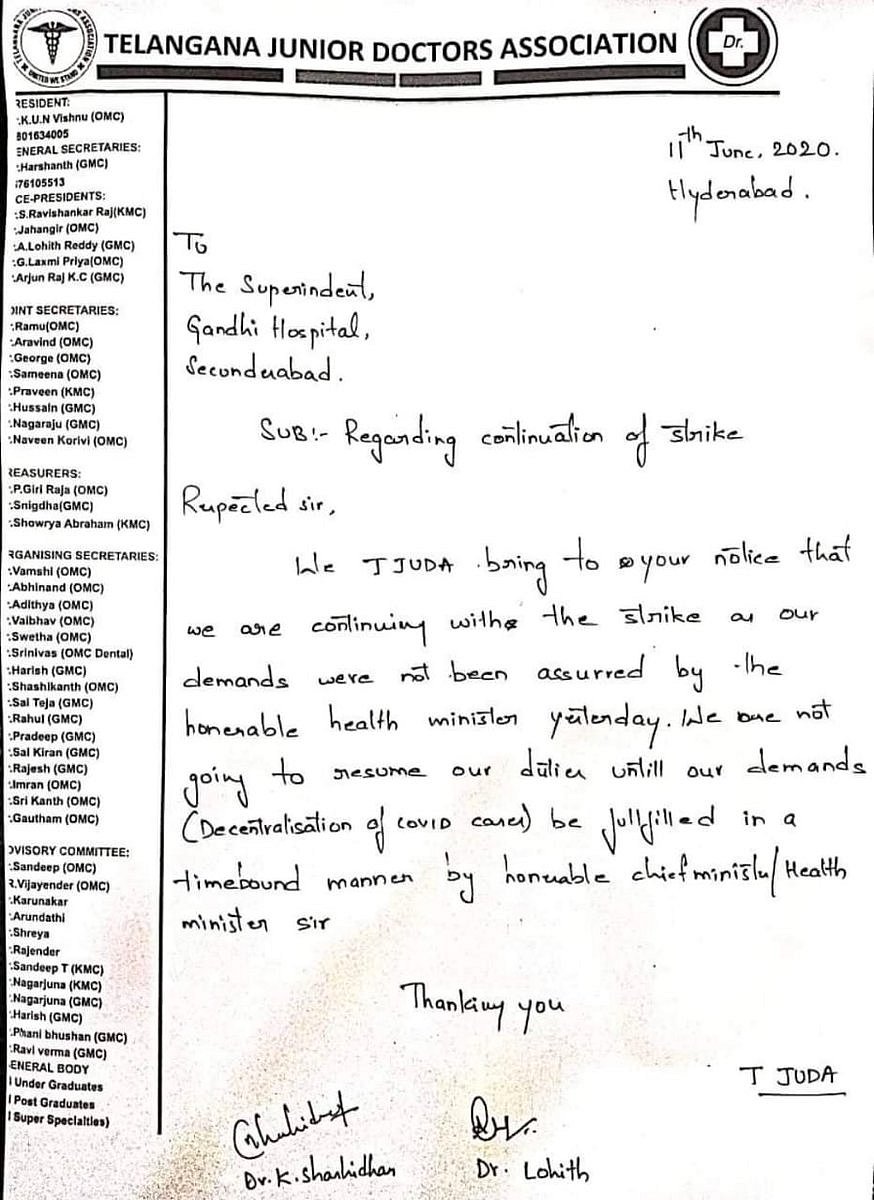 TELANGANA JUNIOR DOCTORS ASSOCIATION
Dr.
UNITED WE STAND
RESIDENT:
:.K.U.N Vishnu (OMC)
801634005
ENERAL SECRETARIES:
:Harshanth (GMC)
76105513
CE-PRESIDENTS:
:S.Ravishankar Raj(KMC)
:Jahangir (OMC)
:A.Lohith Reddy (GMC)
:G.Laxmi Priya(OMC)
:Arjun Raj K.C (GMC)
OINT SECRETARIES:
:Ramu(OMC)
:Aravind (OMC)
:George (OMC)
:Sameena (OMC)
:Praveen (KMC)
:Hussain (GMC)
:Nagaraju (GMC)
:Naveen Korivi (OMC)
REASURERS:
:P.Giri Raja (OMC)
:Snigdha(GMC)
:Showrya Abraham (KMC)
RGANISING SECRETARIES:
:Vamshi (OMC)
:Abhinand (OMC)
:Adithya (OMC)
:Vaibhav (OMC)
:Swetha (OMC)
:Srinivas (OMC Dental)
:Harish (GMC)
:Shashikanth (OMC)
:Sai Teja (GMC)
:Rahul (GMC)
:Pradeep (GMC)
:Sai Kiran (GMC)
:Rajesh (GMC)
:Imran (OMC)
:Sri Kanth (OMC)
:Gautham (OMC)
OVISORY COMMITTEE:
:Sandeep (OMC)
R.Vijayender (OMC)
:Karunakar
:Arundathi
:Shreya
:Rajender
:Sandeep T (KMC)
:Nagarjuna (KMC)
:Nagarjuna (GMC)
:Harish (GMC)
:Phani bhushan (GMC)
:Ravi verma (GMC)
ENERAL BODY
l Under Graduates
l Post Graduates
l Super Specialties)
11th June, 2020.
Hyderabad.
To
The Superindent,
Gandhi Hospital,
Secunderabad.
SUB:- Regarding continuation of strike
Respected sir,
We TJUDA bring to your notice that
we are continuing with the strike as our
demands were not been assurred by the
honerable health minister yesterday. We are not
going to resume our duties untill our demands
(Decentralisation of COVID cases) be fullfilled in a
timebound manner by honerable chief minister/Health
minister sir
Thanking you
T JUDA
Dr. K. Shashidhar
Dr. Lohith